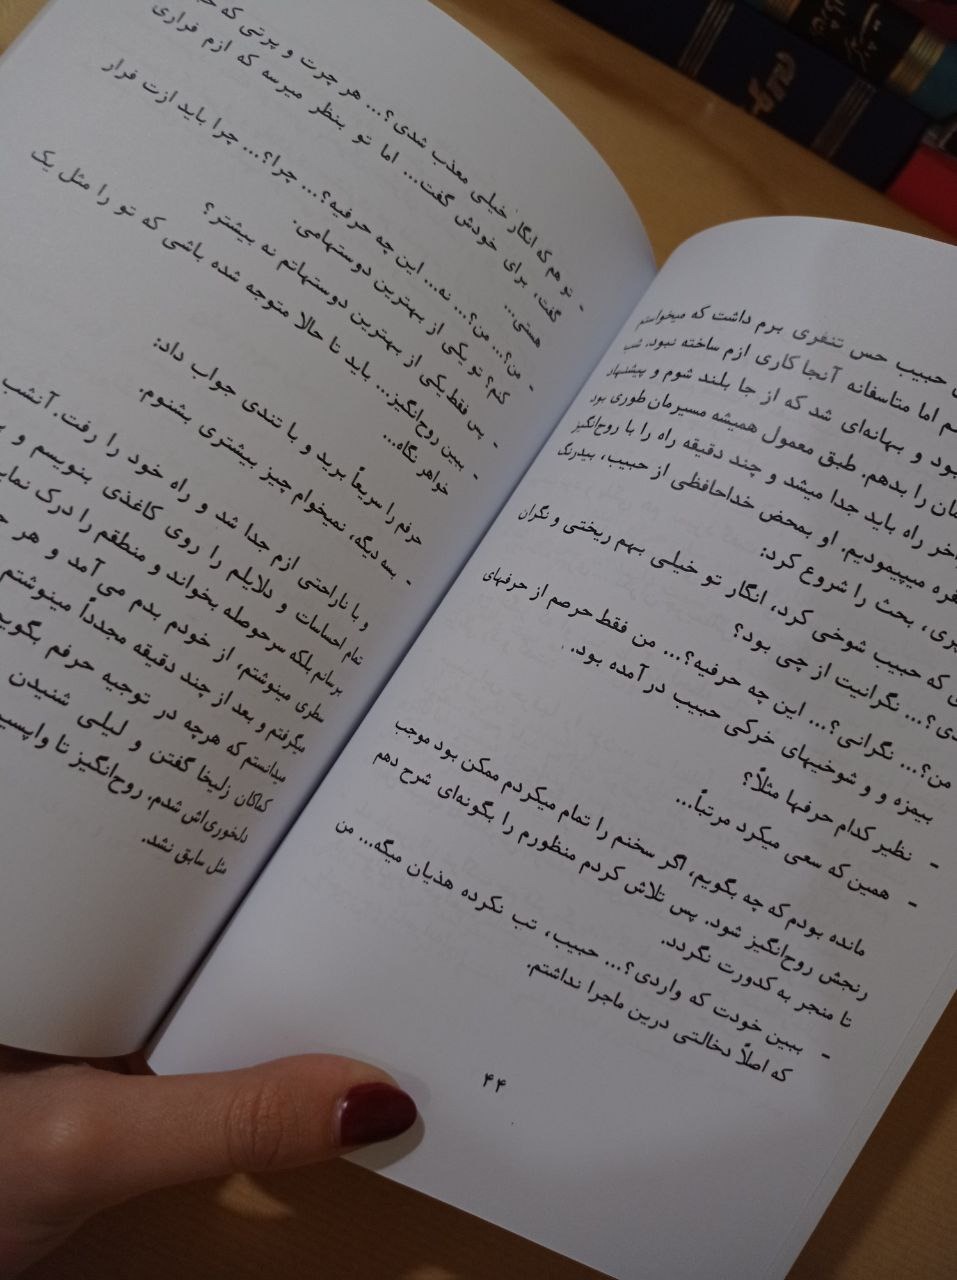 حبیب حس تنفری برم داشت که میخواستم
اما متاسفانه آنجا کاری ازم ساخته نبود. شب
بود و بهانه‌ای شد که از جا بلند شوم و پیشنهاد
را بدهم. طبق معمول همیشه مسیرمان طوری بود
راه باید جدا میشد و چند دقیقه راه را با روح‌انگیز
میپیمودیم. او بمحض خداحافظی از حبیب، بیدرنگ
بحث را شروع کرد:
که حبیب شوخی کرد، انگار تو خیلی بهم ریختی و نگران
نگرانیت از چی بود؟
من؟... نگرانی؟... این چه حرفیه؟... من فقط حرصم از حرفهای
بیمزه و و شوخیهای خرکی حبیب در آمده بود.
- نظیر کدام حرفها مثلاً؟
- همین که سعی میکرد مرتباً...
مانده بودم که چه بگویم، اگر سخنم را تمام میکردم ممکن بود موجب
رنجش روح‌انگیز شود. پس تلاش کردم منظورم را بگونه‌ای شرح دهم
تا منجر به کدورت نگردد.
- ببین خودت که واردی؟... حبیب، تب نکرده هذیان میگه... من
که اصلاً دخالتی درین ماجرا نداشتم.
۴۴
- تو هم که انگار خیلی معذب شدی؟... هر چرت و پرتی که
گفت، برای خودش گفت... اما تو بنظر میرسه که ازم فراری
هستی...
- من؟... نه... این چه حرفیه؟... چرا؟... چرا باید ازت فرار
کنم؟ تو یکی از بهترین دوستهامی.
- پس فقط یکی از بهترین دوستهاتم نه بیشتر؟
- ببین روح‌انگیز... باید تا حالا متوجه شده باشی که تو را مثل یک
خواهر نگاه...
حرفم را سریعاً برید و با تندی جواب داد:
- بسه دیگه، نمیخوام چیز بیشتری بشنوم.
و با ناراحتی ازم جدا شد و راه خود را رفت. آنشب
تمام احساسات و دلایلم را روی کاغذی بنویسم و
برمانم بلکه سر حوصله بخواند و منطقم را درک
سطری مینوشتم، از خودم بدم می آمد و هر
میگرفتم و بعد از چند دقیقه مجدداً مینوشتم
میدانستم که هرچه در توجیه حرفم
کماکان زلیخا گفتن و لیلی شنیدن
دلخوری‌اش شدم. روح‌انگیز تا
مثل سابق نشد.